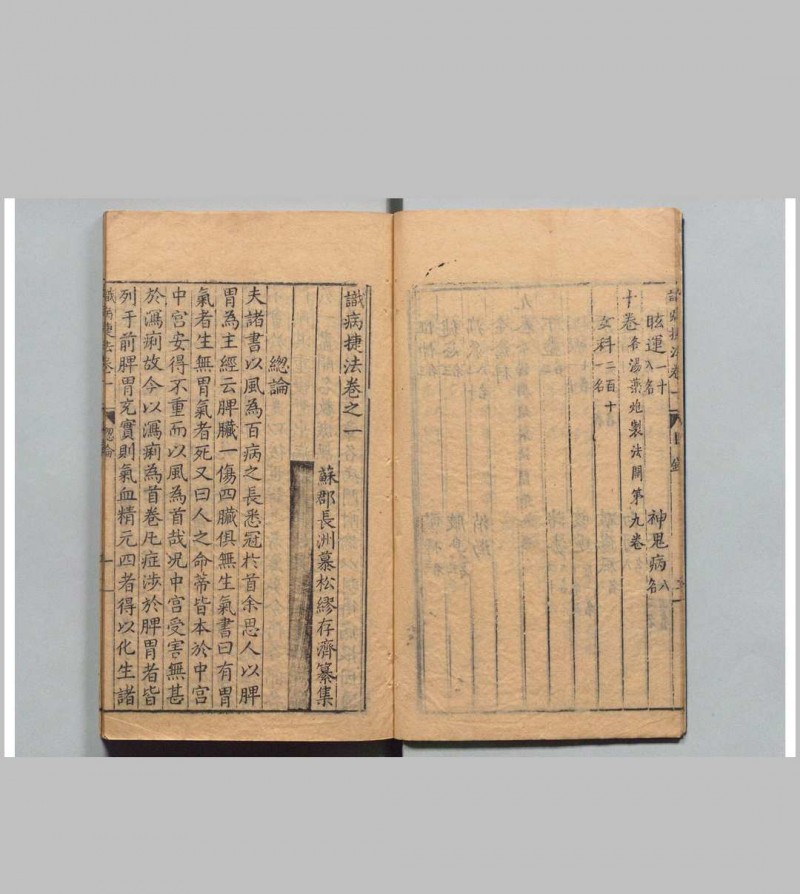 識病捷法卷一 目錄
眩運一十八名 神鬼病八名
十卷 各湯藥炮製法開第九卷
女科二百十一名
識病捷法卷之一
蘇郡長洲慕松繆存濟纂集
總論
夫諸書以風為百病之長悉冠於首余思人以脾
胃為主經云脾臟一傷四臟俱無生氣書曰有胃
氣者生無胃氣者死又曰人之命蒂皆本於中宮
中宮安得不重而以風為首哉况中宮受害無甚
於瀉痢故今以瀉痢為首卷凡症涉於脾胃者皆
列于前脾胃充實則氣血精元四者得以化生諸
識病捷法卷一 總論 一